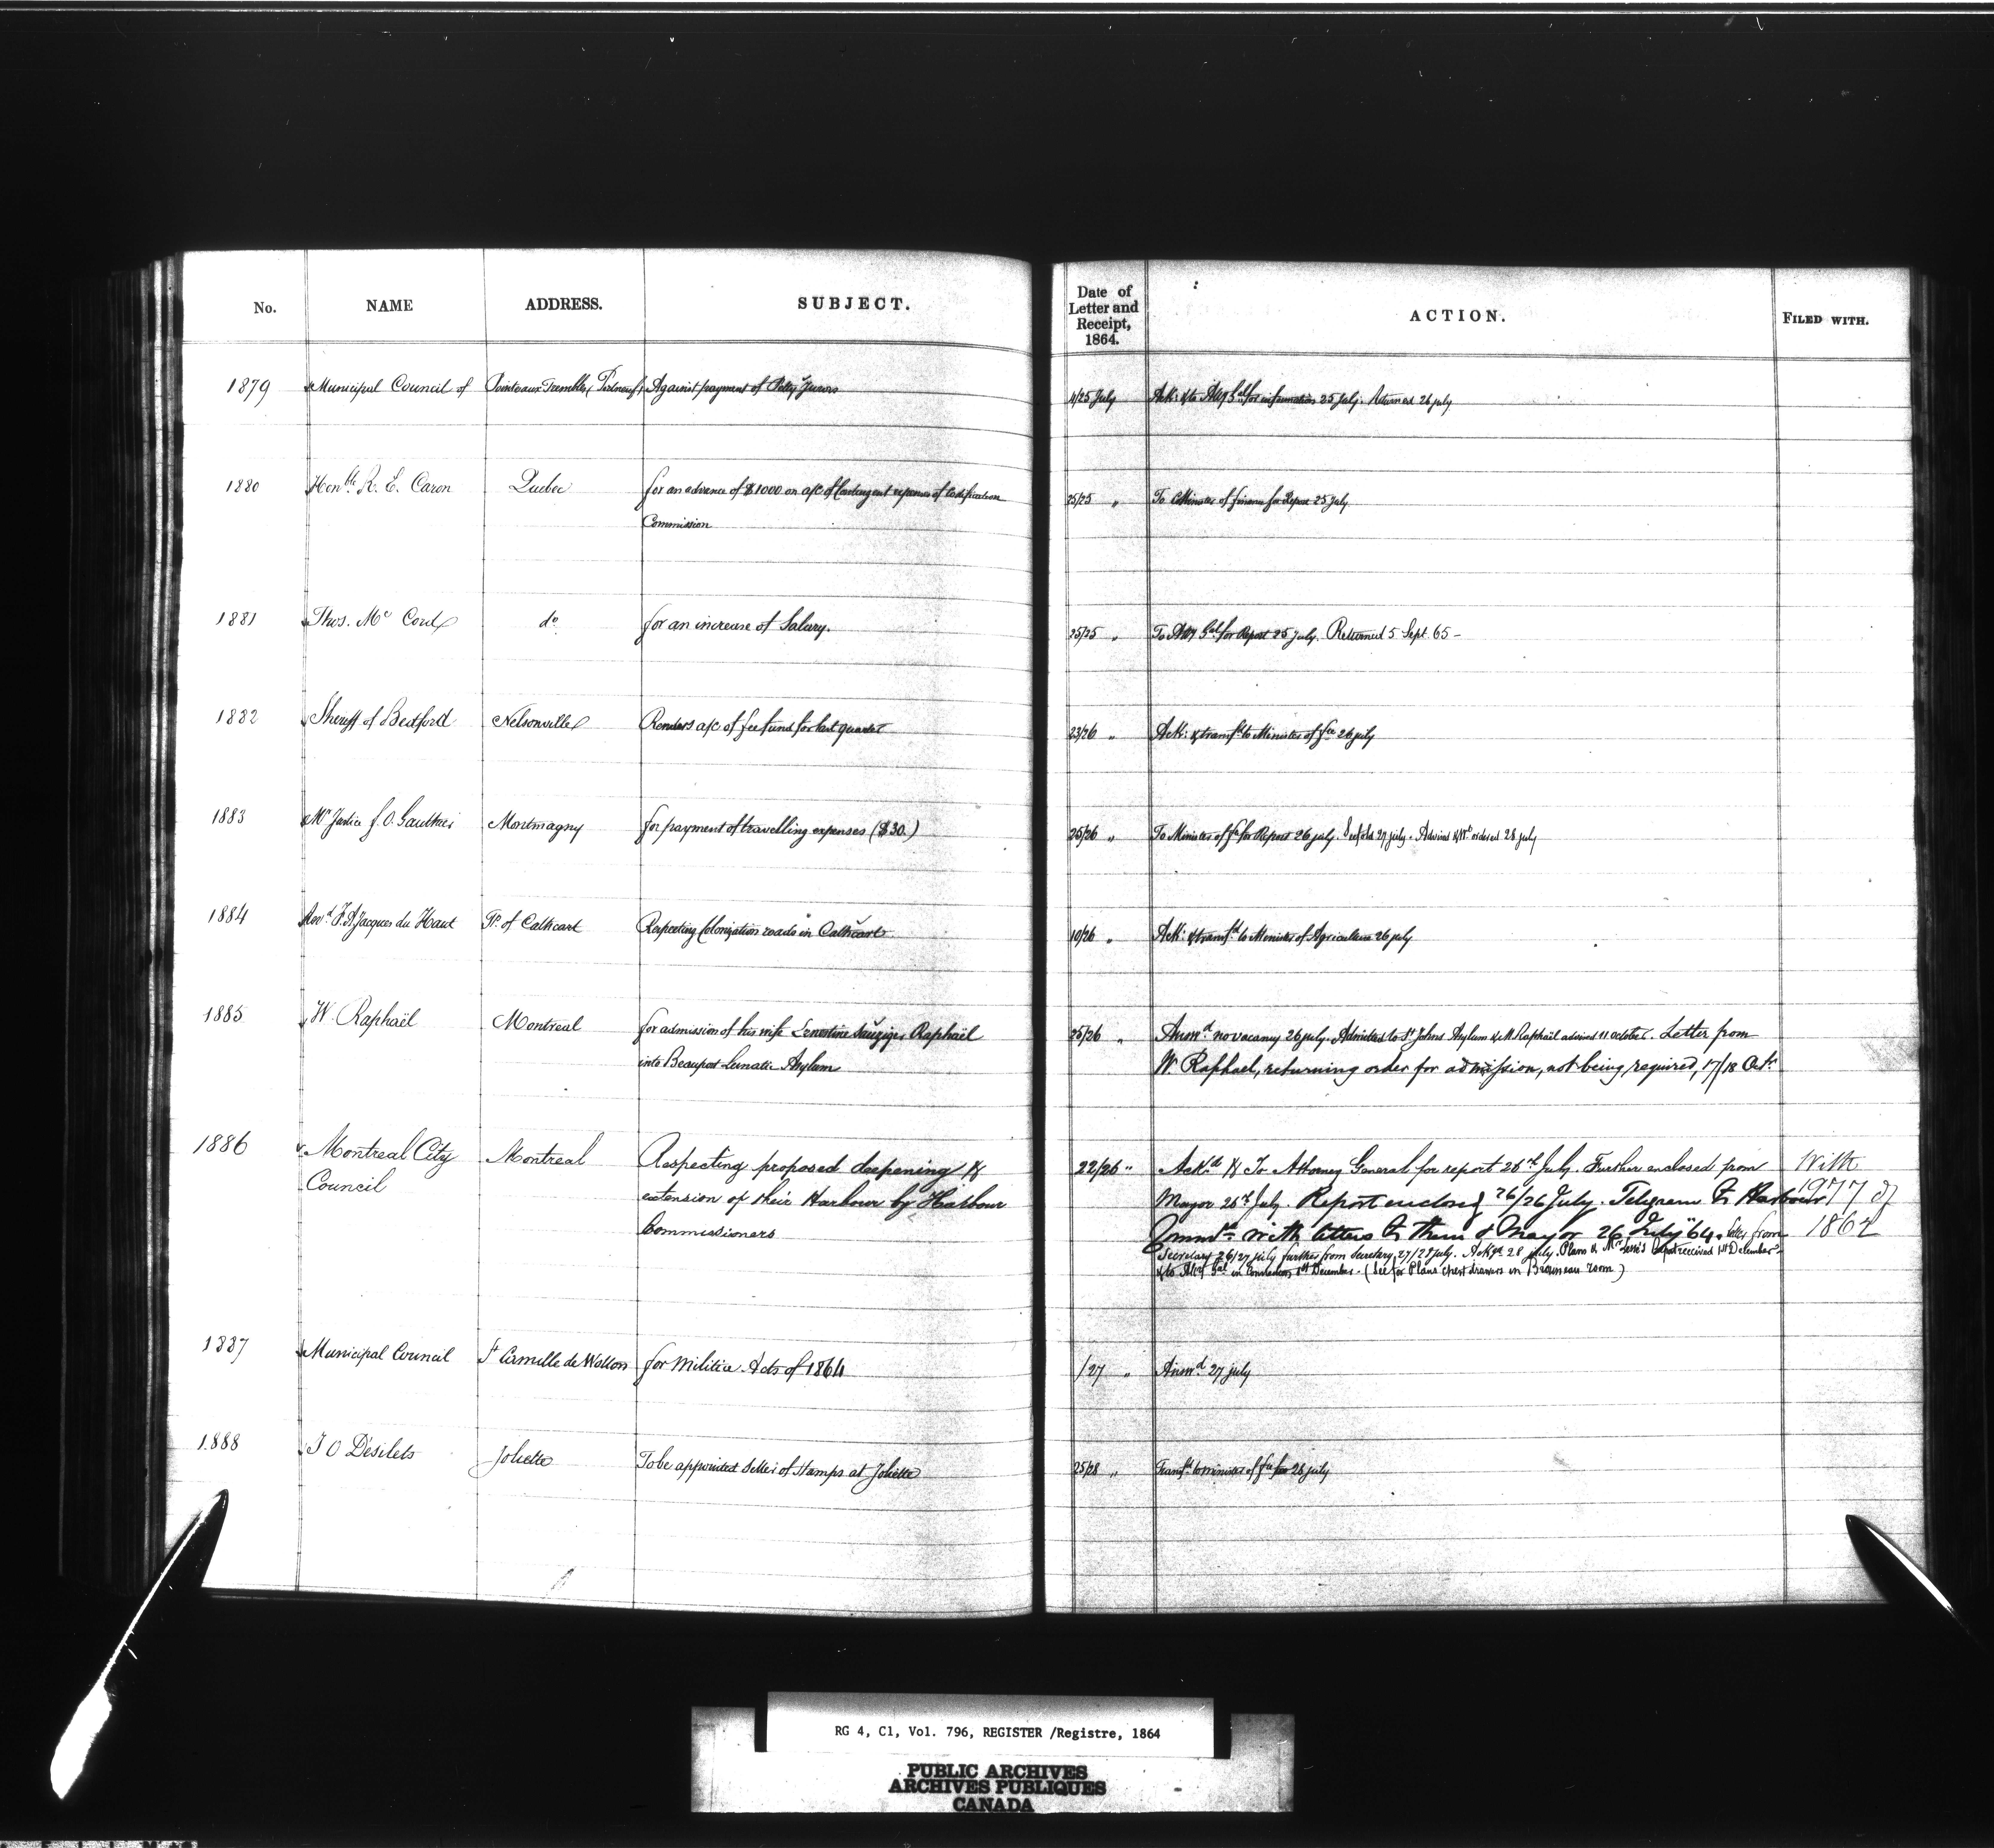 No. NAME ADDRESS. SUBJECT. Date of Letter and Receipt, 1864. ACTION. FILED WITH.
1879 Municipal Council of Pointe aux Trembles, Portneuf, Against payment of Petty Jurors 11/25 July Ack: & to Atty Gal for information 25 July. Returned 26 July
1880 Honble R. E. Caron Quebec for an advance of $1000 on a/c of Contingent expenses of Codification 25/25 " To Minister of finance for Report 25 July
Commission
1881 Thos. Mc Cord do for an increase of Salary. 25/25 " To Atty Gal for Report 25 July. Returned 5 Sept. 65 -
1882 Sheriff of Bedford Nelsonville Renders a/c of fee fund for last quarter 23/26 " Ack: & transfd to Minister of fce 26 July
1883 Mr Justice J. O. Gauthier Montmagny for payment of travelling expenses ($30.) 25/26 " To Minister of fce for Report 26 July. 27 July. Advised & Wt ordered 28 July
1884 Revd Jacques du Haut Tp. of Cathcart Respecting Colonization roads in Cathcart 10/26 " Ack: & transfd to Minister of Agriculture 26 July
1885 W. Raphaël Montreal for admission of his wife Ernestine Raphaël 25/26 " Answd no vacancy 26 July. Admitted to St Johns Asylum & Mr Raphaël advised 11 October. Letter from
into Beauport Lunatic Asylum W. Raphael, returning order for admission, not being required, 17/18 Oct.
1886 Montreal City Montreal Respecting proposed deepening & 22/26 " Ackd & To Attorney General for report 26th July. Further enclosed from With
Council extension of their Harbour by Harbour Mayor 26th July. Report enclosed 26/26 July. Telegram to Harbour 1977 of
Commissioners Commrs with letters to them & Mayor 26 July "64. letter from 1864
Secretary 26/27 July further from Secretary 27/28 July. Ackgd 28 July. Plans & Mr Report received 1st December
& to Atty Gal in connection 1st December. (See for Plans chest drawers in room)
1887 Municipal Council St Camille de Wotton for Militia Acts of 1864 /27 " Answd 27 July
1888 J O Désilets Joliette To be appointed Seller of Stamps at Joliette 25/28 " Transfd to Minister of fce 28 July
RG 4, C1, Vol. 796, REGISTER /Registre, 1864
PUBLIC ARCHIVES
ARCHIVES PUBLIQUES
CANADA